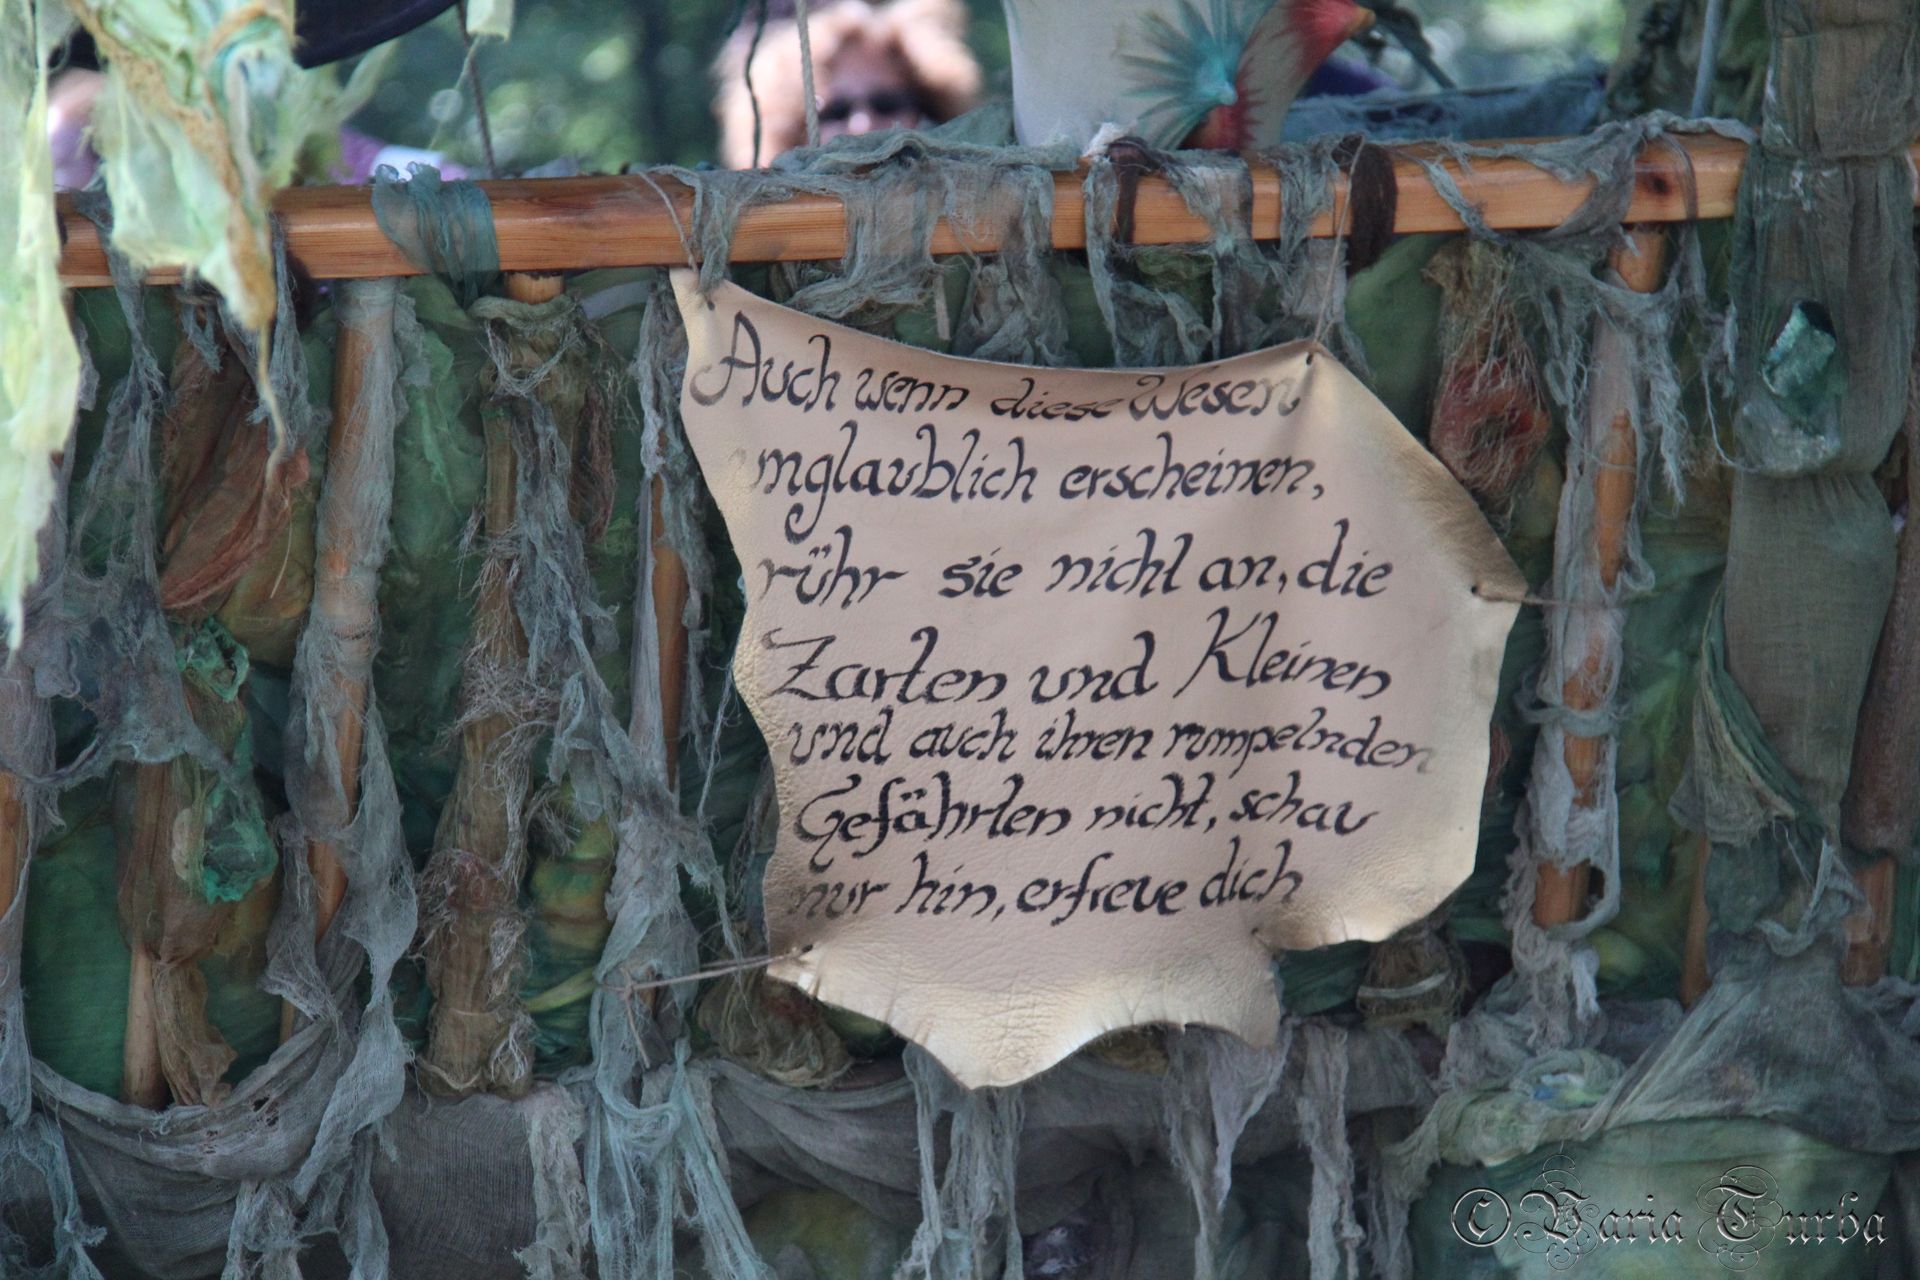 Auch wenn diese Wesen
unglaublich erscheinen,
rühr sie nicht an, die
Zarten und Kleinen
und auch ihren rumpelnden
Gefährten nicht, schau
nur hin, erfreue dich
© Varia Turba